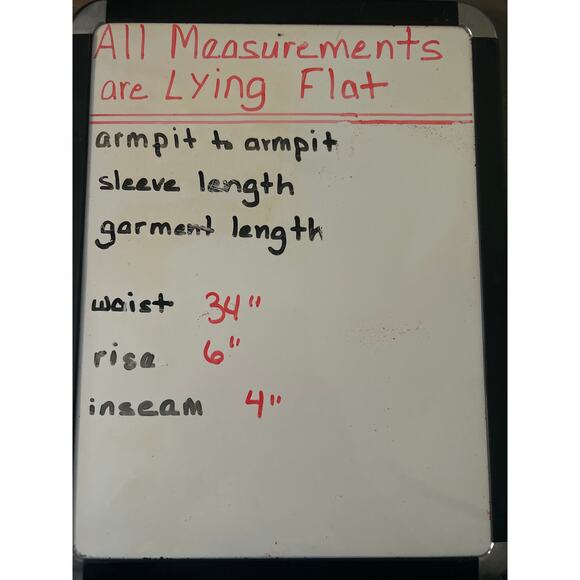 All Measurements
are Lying Flat
armpit to armpit
sleeve length
garment length
waist 34"
rise 6"
inseam 4"